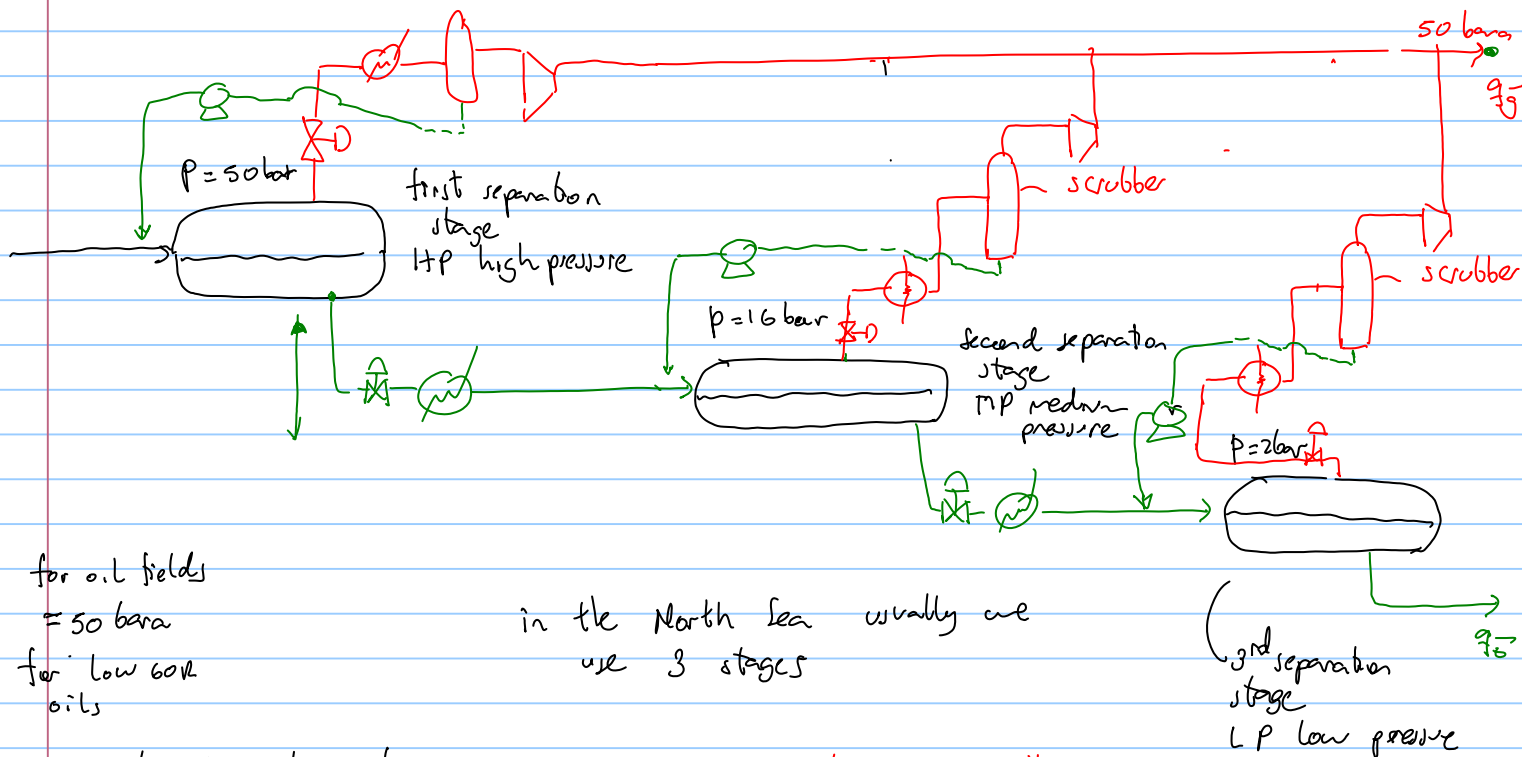 50 bara
qḡ
P = 50 bar
first separation
stage
HP high pressure
scrubber
scrubber
P = 16 bar
second separation
stage
MP medium
pressure
P = 2 bar
for oil fields
= 50 bara
for low GOR
oils
in the North Sea usually we
use 3 stages
qō
3rd separation
stage
LP low pressure